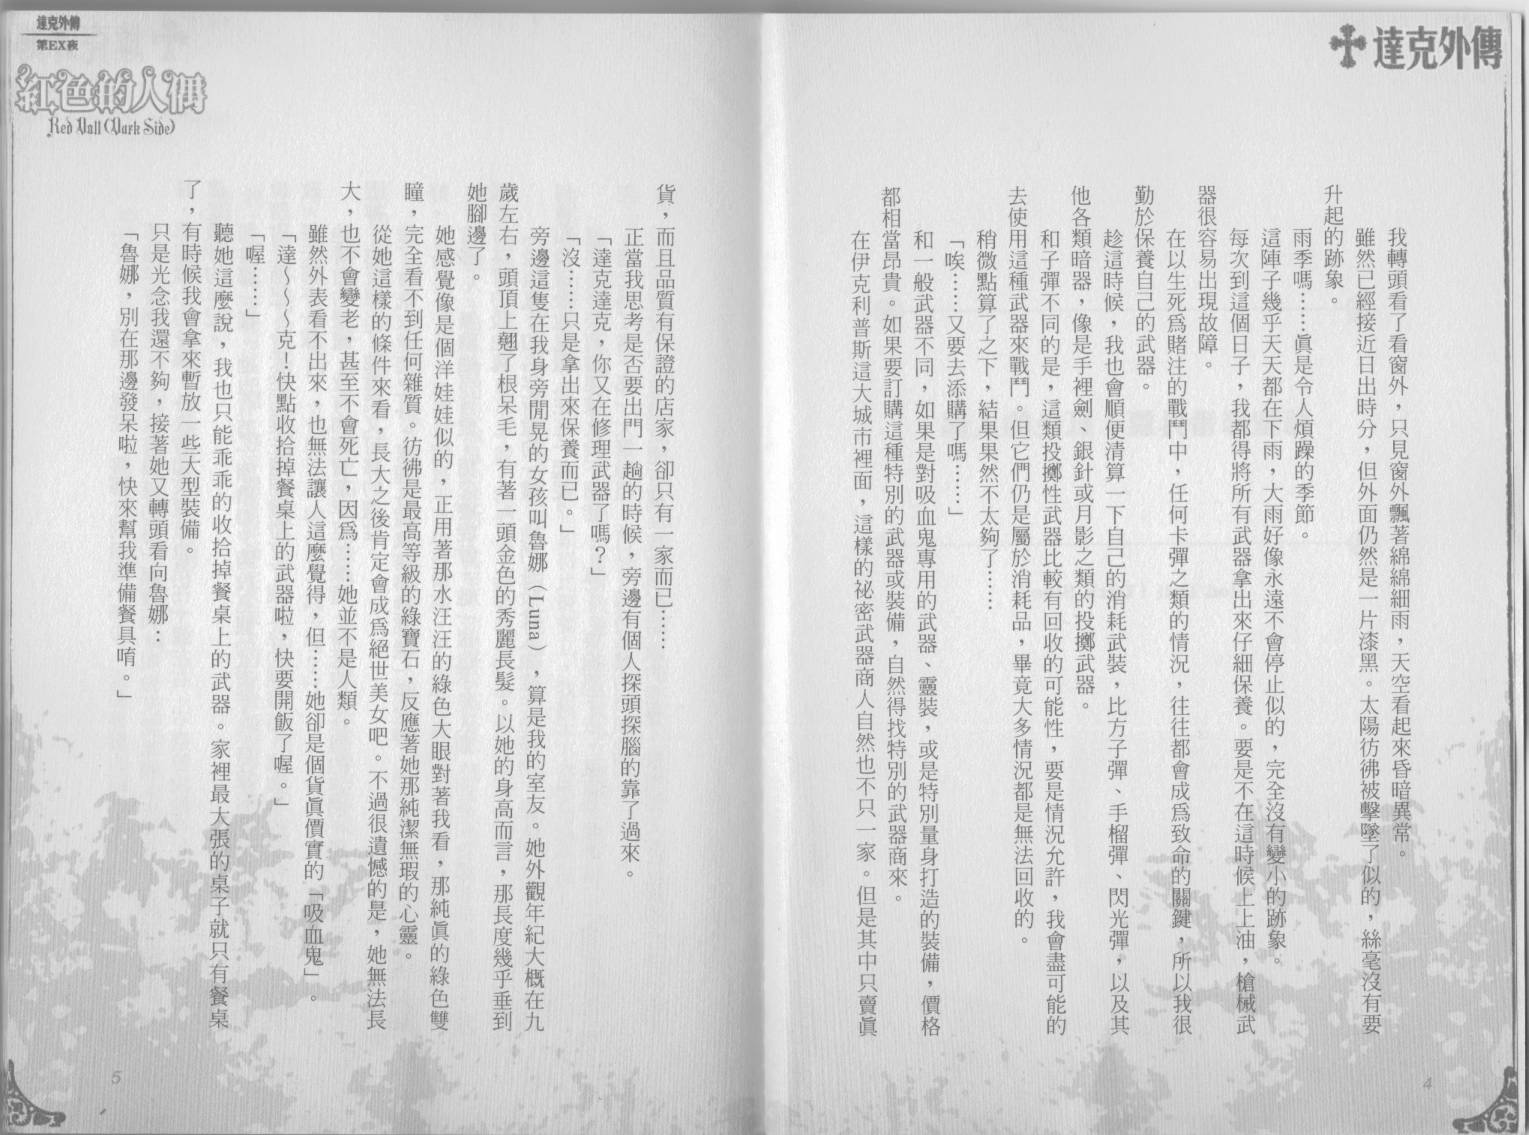 達克外傳
我轉頭看了看窗外，只見窗外飄著綿綿細雨，天空看起來昏暗異常。
雖然已經接近日出時分，但外面仍然是一片漆黑。太陽彷彿被擊墜了似的，絲毫沒有要
升起的跡象。
雨季嗎……眞是令人煩躁的季節。
這陣子幾乎天天都在下雨，大雨好像永遠不會停止似的，完全沒有變小的跡象。
每次到這個日子，我都得將所有武器拿出來仔細保養。要是不在這時候上上油，槍械武
器很容易出現故障。
在以生死爲賭注的戰鬥中，任何卡彈之類的情況，往往都會成爲致命的關鍵，所以我很
勤於保養自己的武器。
趁這時候，我也會順便清算一下自己的消耗武裝，比方子彈、手榴彈、閃光彈，以及其
他各類暗器，像是手裡劍、銀針或月影之類的投擲武器。
和子彈不同的是，這類投擲性武器比較有回收的可能性，要是情況允許，我會盡可能的
去使用這種武器來戰鬥。但它們仍是屬於消耗品，畢竟大多情況都是無法回收的。
稍微點算了之下，結果果然不太夠了……
「唉……又要去添購了嗎……」
和一般武器不同，如果是對吸血鬼專用的武器、靈裝，或是特別量身打造的裝備，價格
都相當昂貴。如果要訂購這種特別的武器或裝備，自然得找特別的武器商來。
在伊克利普斯這大城市裡面，這樣的祕密武器商人自然也不只一家。但是其中只賣眞
4
達克外傳
第EX夜
紅色的人偶
Red Doll (Dark Side)
貨，而且品質有保證的店家，卻只有一家而已……
正當我思考是否要出門一趟的時候，旁邊有個人探頭探腦的靠了過來。
「達克達克，你又在修理武器了嗎？」
「沒……只是拿出來保養而已。」
旁邊這隻在我身旁閒晃的女孩叫魯娜（Luna），算是我的室友。她外觀年紀大概在九
歲左右，頭頂上翹了根呆毛，有著一頭金色的秀麗長髮。以她的身高而言，那長度幾乎垂到
她腳邊了。
她感覺像是個洋娃娃似的，正用著那水汪汪的綠色大眼對著我看，那純眞的綠色雙
瞳，完全看不到任何雜質。彷彿是最高等級的綠寶石，反應著她那純潔無瑕的心靈。
從她這樣的條件來看，長大之後肯定會成爲絕世美女吧。不過很遺憾的是，她無法長
大，也不會變老，甚至不會死亡，因爲……她並不是人類。
雖然外表看不出來，也無法讓人這麼覺得，但……她卻是個貨眞價實的「吸血鬼」。
「達～～～克！快點收拾掉餐桌上的武器啦，快要開飯了喔。」
「喔……」
聽她這麼說，我也只能乖乖的收拾掉餐桌上的武器。家裡最大張的桌子就只有餐桌
了，有時候我會拿來暫放一些大型裝備。
只是光念我還不夠，接著她又轉頭看向魯娜：
「魯娜，別在那邊發呆啦，快來幫我準備餐具唷。」
5